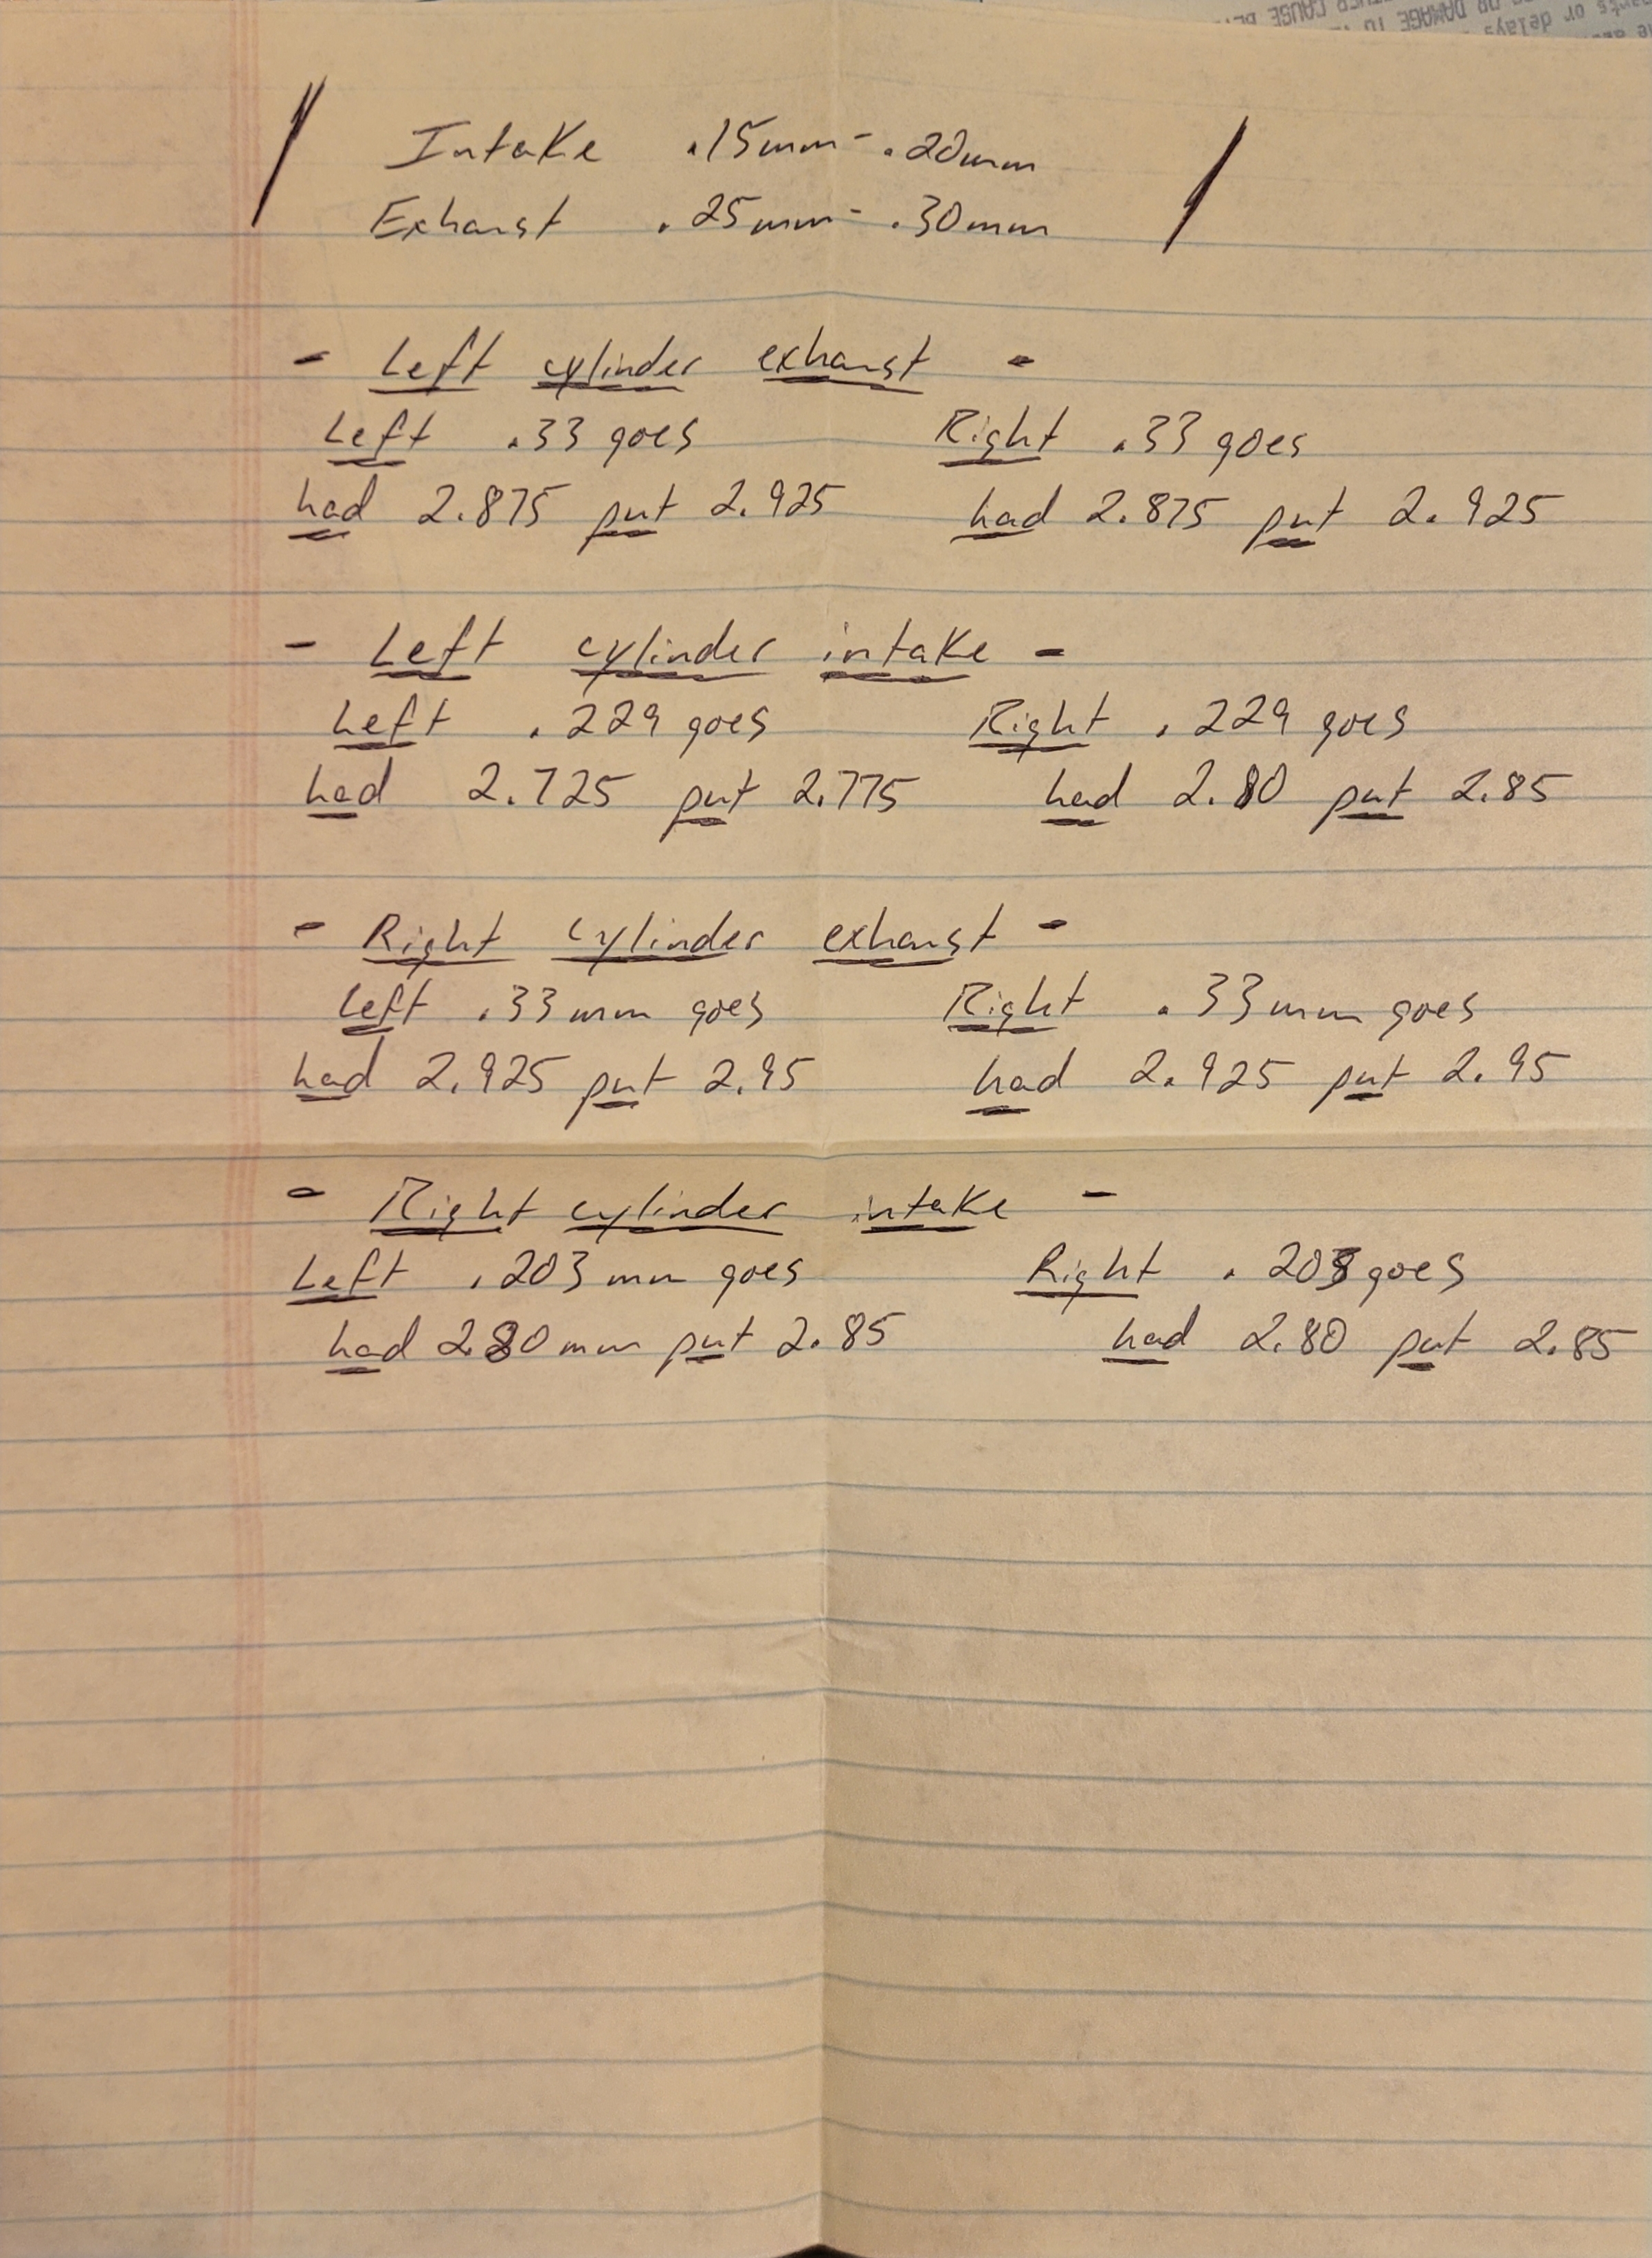 ants or delays
OR DAMAGE TO
Intake .15mm - .20mm
Exhaust .25mm - .30mm
- Left cylinder exhaust -
Left .33 goes Right .33 goes
had 2.875 put 2.925 had 2.875 put 2.925
- Left cylinder intake -
Left .229 goes Right .229 goes
had 2.725 put 2.775 had 2.80 put 2.85
- Right cylinder exhaust -
Left .33mm goes Right .33mm goes
had 2.925 put 2.95 had 2.925 put 2.95
- Right cylinder intake -
Left .203 mm goes Right .203 goes
had 2.80 mm put 2.85 had 2.80 put 2.85